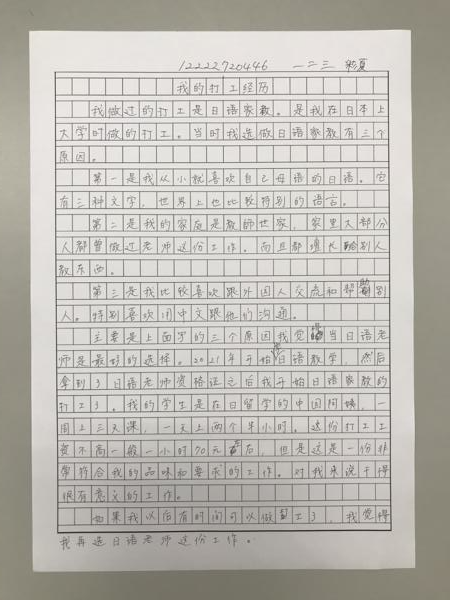 12222720446 一二三 彩夏
我的打工经历
我做过的打工是日语家教。是我在日本上
大学时做的打工。当时我选做日语家教有三个
原因。
第一是我从小就喜欢自己母语的日语。它
有三种文字，世界上也比较特别的语言。
第二是我的家庭是教师世家，家里大部分
人都曾做过老师这份工作。而且都擅长 别人
教东西。
第三是我比较喜欢跟外国人交流和帮助别
人。特别喜欢用中文跟他们沟通。
主要是上面写的三个原因我觉得当日语老
师是最好的选择。2021年开始日语教学，然后
拿到了日语老师资格证之后我开始日语家教的
打工了。我的学生是在日留学的中国阿姨，一
周上三天课，一天上两个半小时。这份打工工
资不高一般一小时70元左右，但是这是一份非
常符合我的品味和要求的工作。对我来说干得
很有意义的工作。
如果我以后有时间可以做打工了，我觉得
我再选日语老师这份工作。